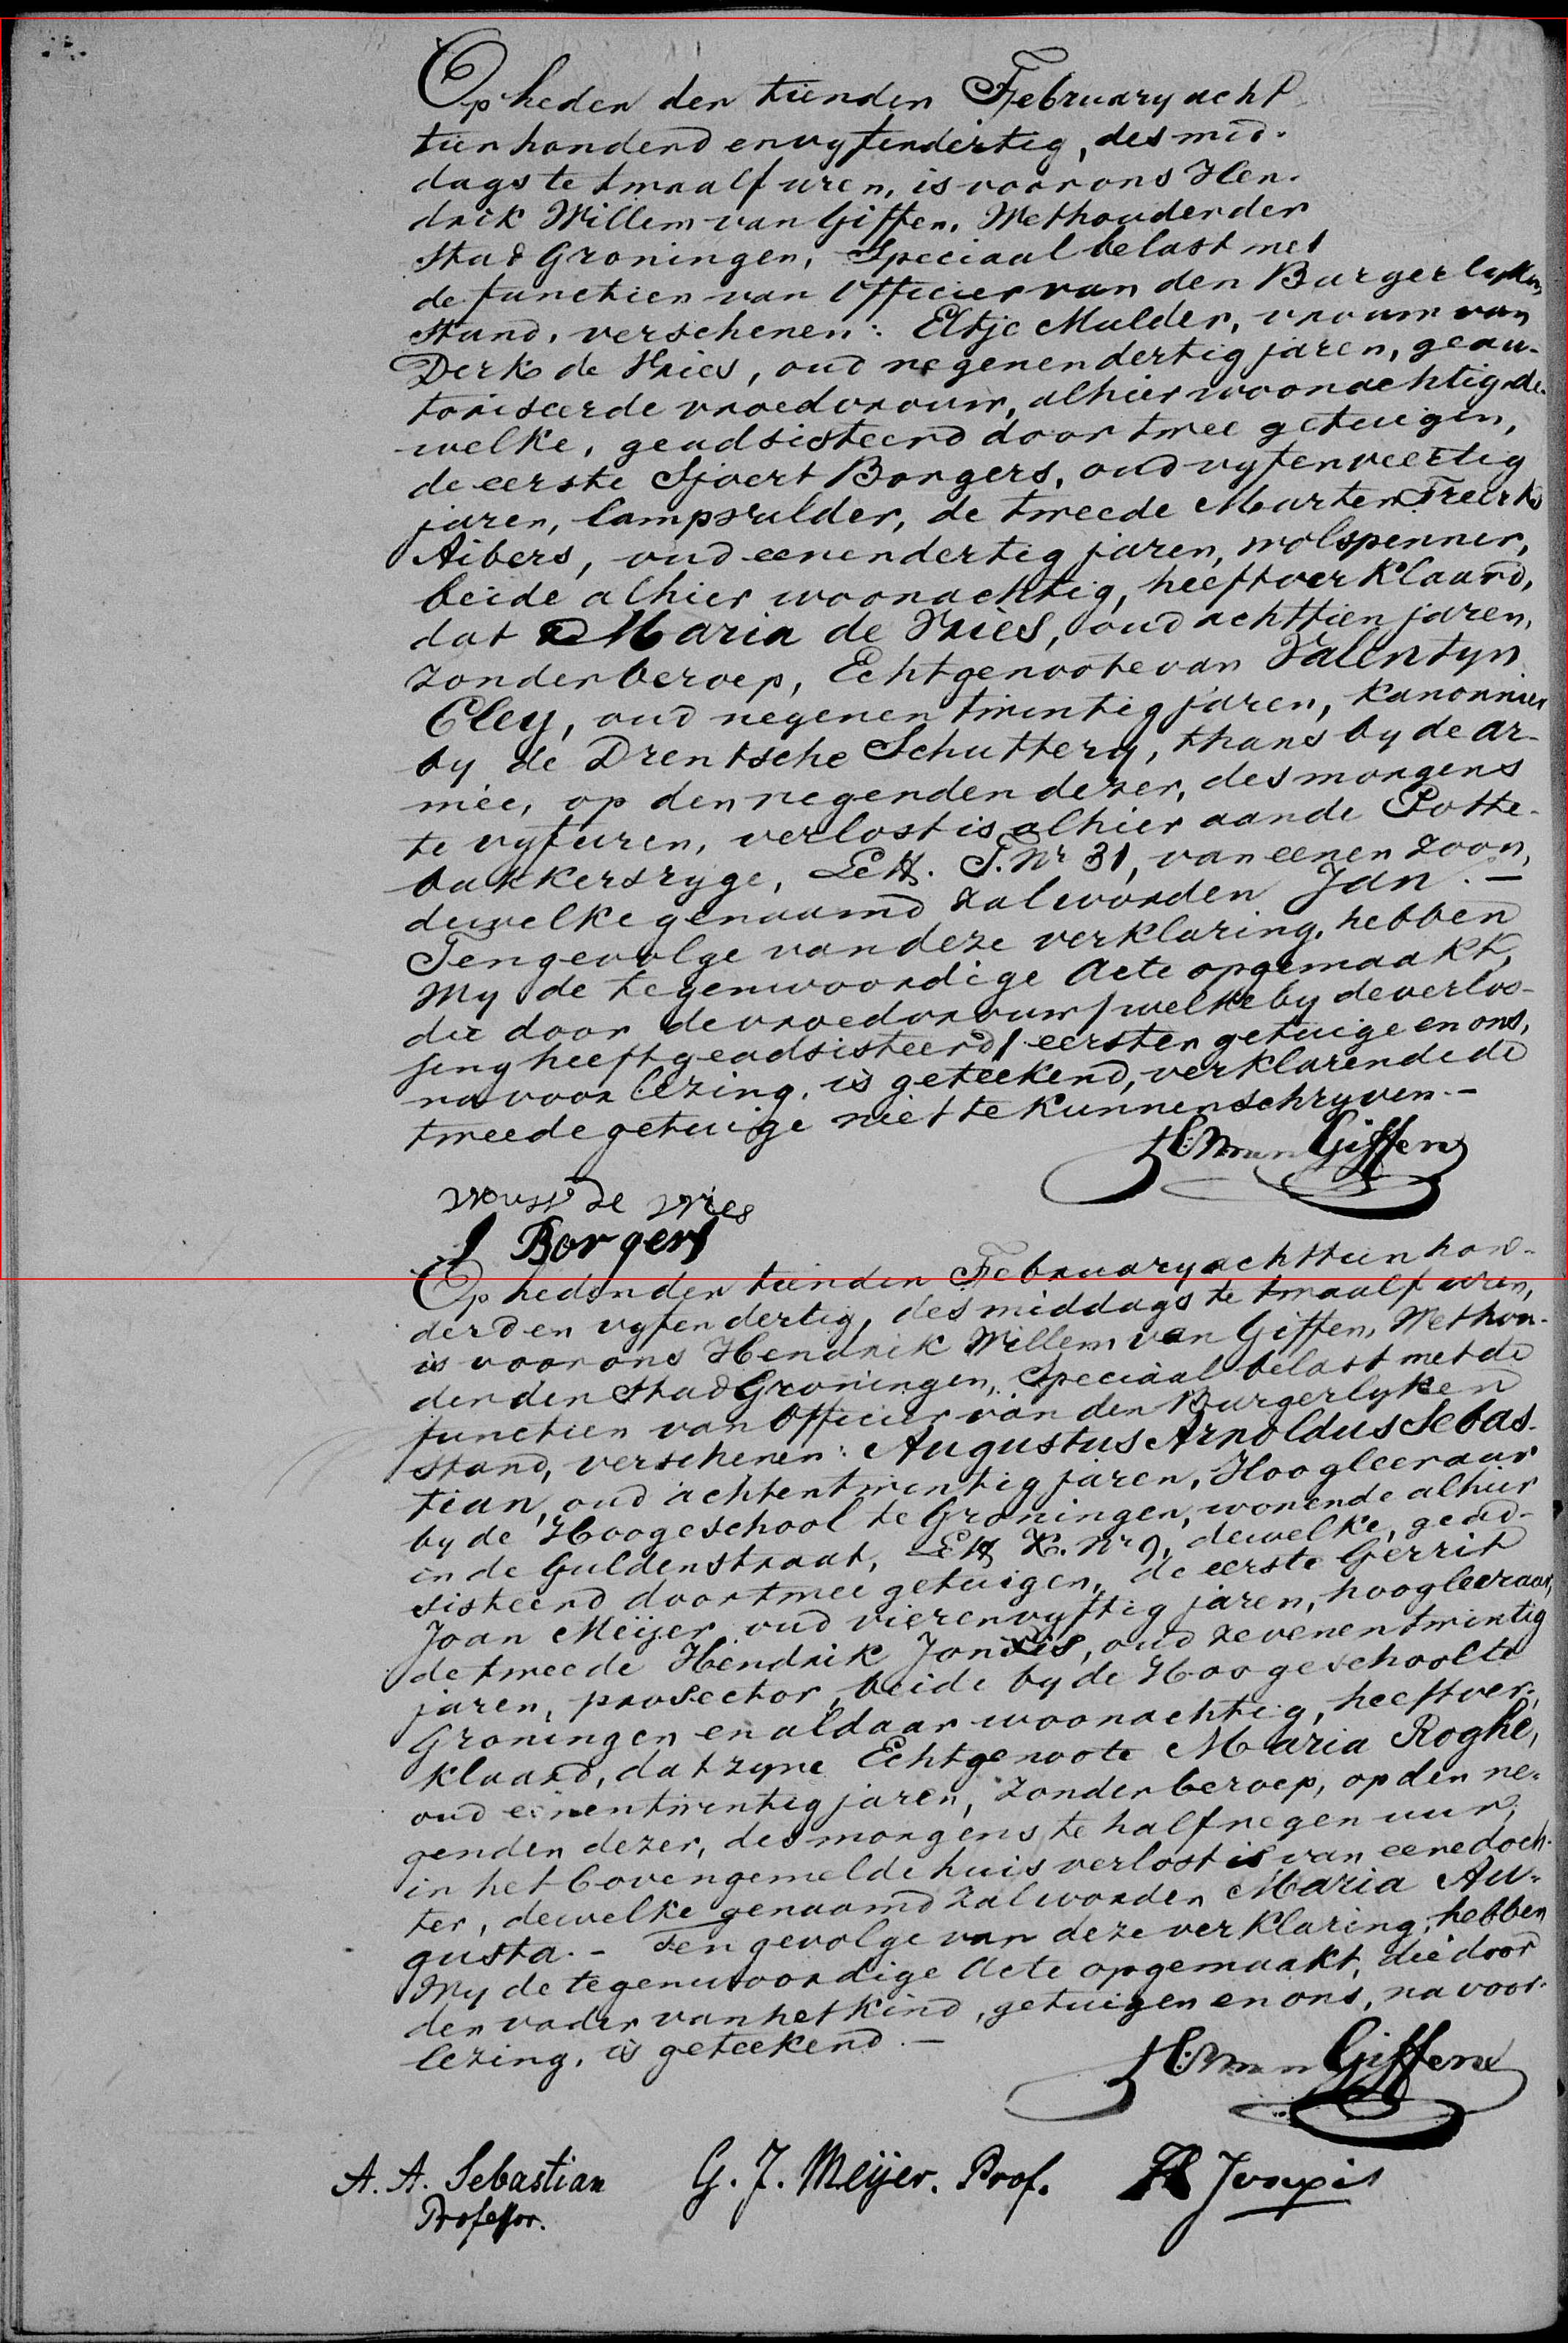 Op heden den tienden February acht
tien honderd en vyf en dertig, des mid-
dags te twaalf uren, is voor ons Hen-
drik Willem van Giffen, Wethouder der
Stad Groningen, Speciaal belast met
de functien van Officier van den Burgerlyken
stand, verschenen: Eltje Mulder, vrouw van
Derk de Vries, oud negen en dertig jaren, geau-
toriseerde vroedvrouw, alhier woonachtig, de-
welke, geadsisteerd door twee getuigen,
de eerste Sjoert Borgers, oud vyf en veertig
jaren, lampvulder, de tweede Marten Freerks
Aibers, oud een en dertig jaren, wolspenner,
beide alhier woonachtig, heeft verklaard,
dat Maria de Vries, oud achttien jaren,
zonder beroep, Echtgenoote van Valentyn
Eley, oud negen en twintig jaren, kanonnier
by de Drentsche Schuttery, thans by de ar-
mée, op den negenden dezer, des morgens
te vyf uren, verlost is alhier aan de Potte-
bakkersryge, Lett. T. Nr 31, van eenen zoon,
dewelke genaamd zal worden Jan. —
Ten gevolge van deze verklaring, hebben
Wy de tegenwoordige Acte opgemaakt,
die door de vroedvrouw / welke by de verlos-
sing heeft geadsisteerd / eersten getuige en ons,
na voorlezing, is geteekend, verklarende de
tweede getuige niet te kunnen schryven. —
H: W van Giffen
vrouw de vries
S Borgers
Op heden den tienden February achttien hon-
derd en vyf en dertig, des middags te twaalf uren,
is voor ons Hendrik Willem van Giffen, Wethou-
der der Stad Groningen, Speciaal belast met de
functien van Officier van den Burgerlyken
stand, verschenen: Augustus Arnoldus Sebas-
tian, oud acht en twintig jaren, Hoogleeraar
by de Hoogeschool te Groningen, wonende alhier
in de Guldenstraat, Lett K. Nr 9, dewelke, gead-
sisteerd door twee getuigen, de eerste Gerrit
Joan Meijer oud vier en vyftig jaren, hoogleeraar,
de tweede Hendrik Jonxis, oud zeven en twintig
jaren, prosector, beide by de Hoogeschool te
Groningen en aldaar woonachtig, heeft ver-
klaard, dat zyne Echtgenoote Maria Roghé,
oud een en twintig jaren, zonder beroep, op den ne-
genden dezer, des morgens te half negen uur,
in het bovengemelde huis verlost is van eene doch-
ter, dewelke genaamd zal worden Maria Au-
gusta. — Ten gevolge van deze verklaring, hebben
Wy de tegenwoordige Acte opgemaakt, die door
den vader van het kind, getuigen en ons, na voor-
lezing, is geteekend. —
H: W van Giffen
A. A. Sebastian G. J. Meijer. Prof. H Jonxis
Professor.